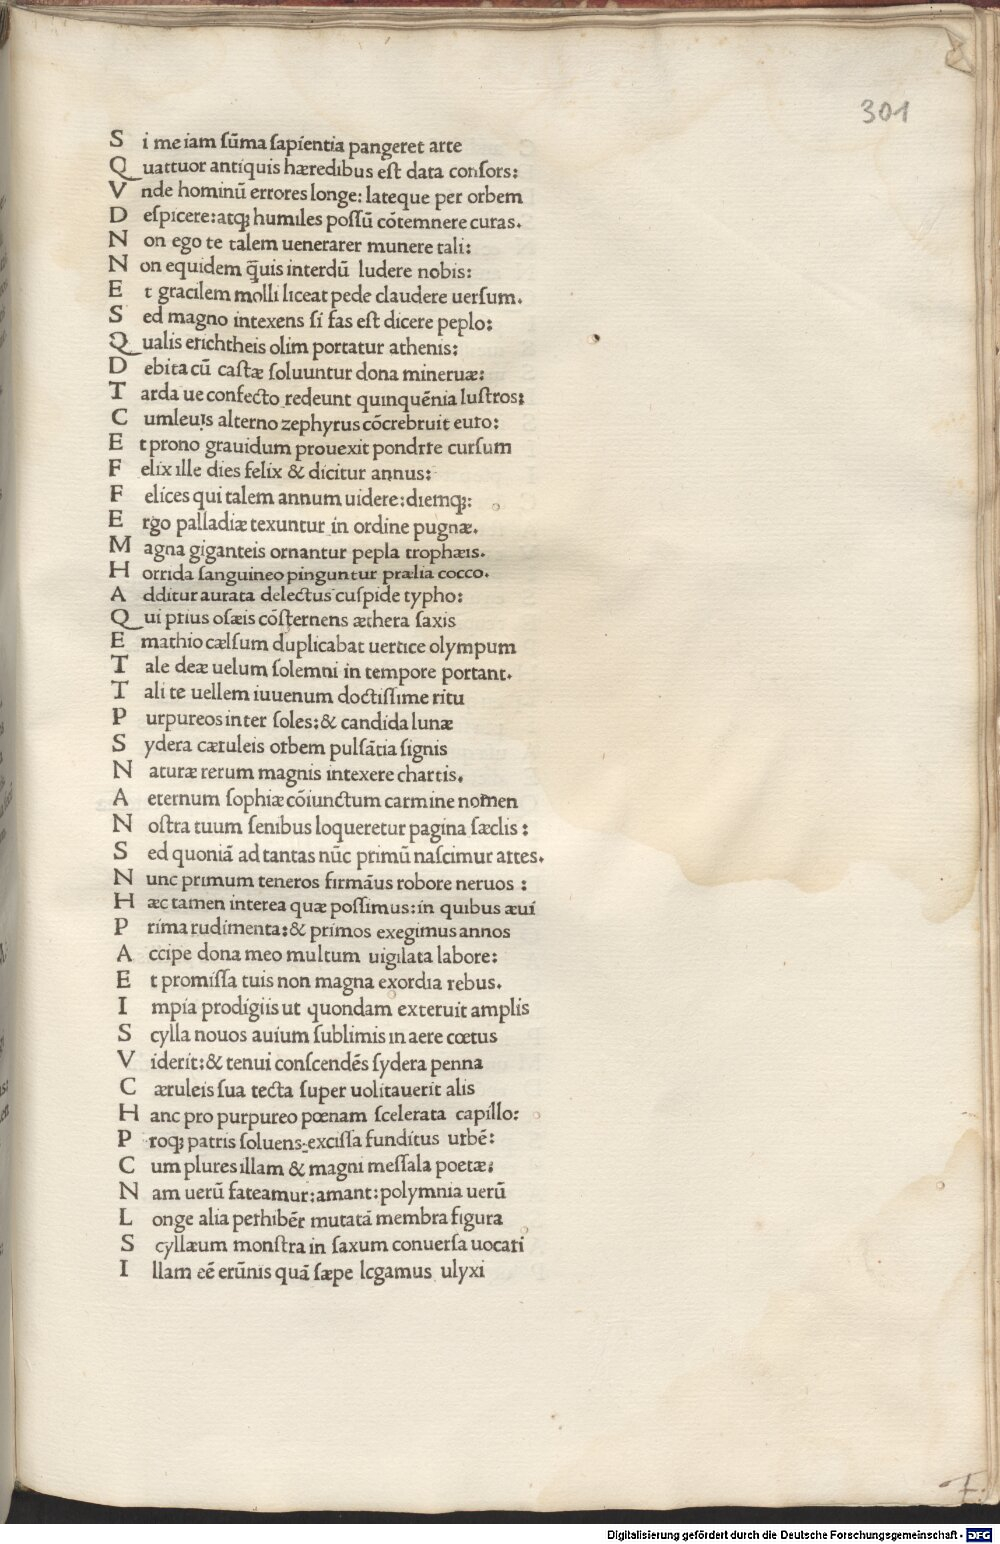 301
S i me iam sūma sapientia pangeret arte
Q uattuor antiquis hæredibus est data consors:
V nde hominū errores longe: lateque per orbem
D espicere: atq; humiles possū cōtemnere curas.
N on ego te talem uenerarer munere tali:
N on equidem q̄uis interdū ludere nobis:
E t gracilem molli liceat pede claudere uersum.
S ed magno intexens si fas est dicere peplo:
Q ualis erichtheis olim portatur athenis:
D ebita cū castæ soluuntur dona mineruæ:
T arda ue confecto redeunt quinquēnia lustros:
C um leuis alterno zephyrus cōcrebruit euro:
E t prono grauidum prouexit pondrre cursum
F elix ille dies felix & dicitur annus:
F elices qui talem annum uidere: diemq;:
E rgo palladiæ texuntur in ordine pugnæ.
M agna giganteis ornantur pepla trophæis.
H orrida sanguineo pinguntur prælia cocco.
A dditur aurata delectus cuspide typho:
Q ui prius osæis cōsternens æthera saxis
E mathio cælsum duplicabat uertice olympum
T ale deæ uelum solemni in tempore portant.
T ali te uellem iuuenum doctissime ritu
P urpureos inter soles: & candida lunæ
S ydera cæruleis orbem pulsātia signis
N aturæ rerum magnis intexere chartis.
A eternum sophiæ cōiunctum carmine nomen
N ostra tuum senibus loqueretur pagina sæclis:
S ed quoniā ad tantas nūc primū nascimur artes.
N unc primum teneros firmāus robore neruos:
H æc tamen interea quæ possimus: in quibus æui
P rima rudimenta: & primos exegimus annos
A ccipe dona meo multum uigilata labore:
E t promissa tuis non magna exordia rebus.
I mpia prodigiis ut quondam exteruit amplis
S cylla nouos auium sublimis in aere cœtus
V iderit: & tenui conscendēs sydera penna
C æruleis sua tecta super uolitauerit alis
H anc pro purpureo pœnam scelerata capillo:
P roq; patris soluens excissa funditus urbē:
C um plures illam & magni messala poetæ:
N am uerū fateamur: amant: polymnia uerū
L onge alia perhibēr mutatā membra figura
S cyllæum monstra in saxum conuersa uocari
I llam eē erūnis quā sæpe legamus ulyxi
Digitalisierung gefördert durch die Deutsche Forschungsgemeinschaft - DFG